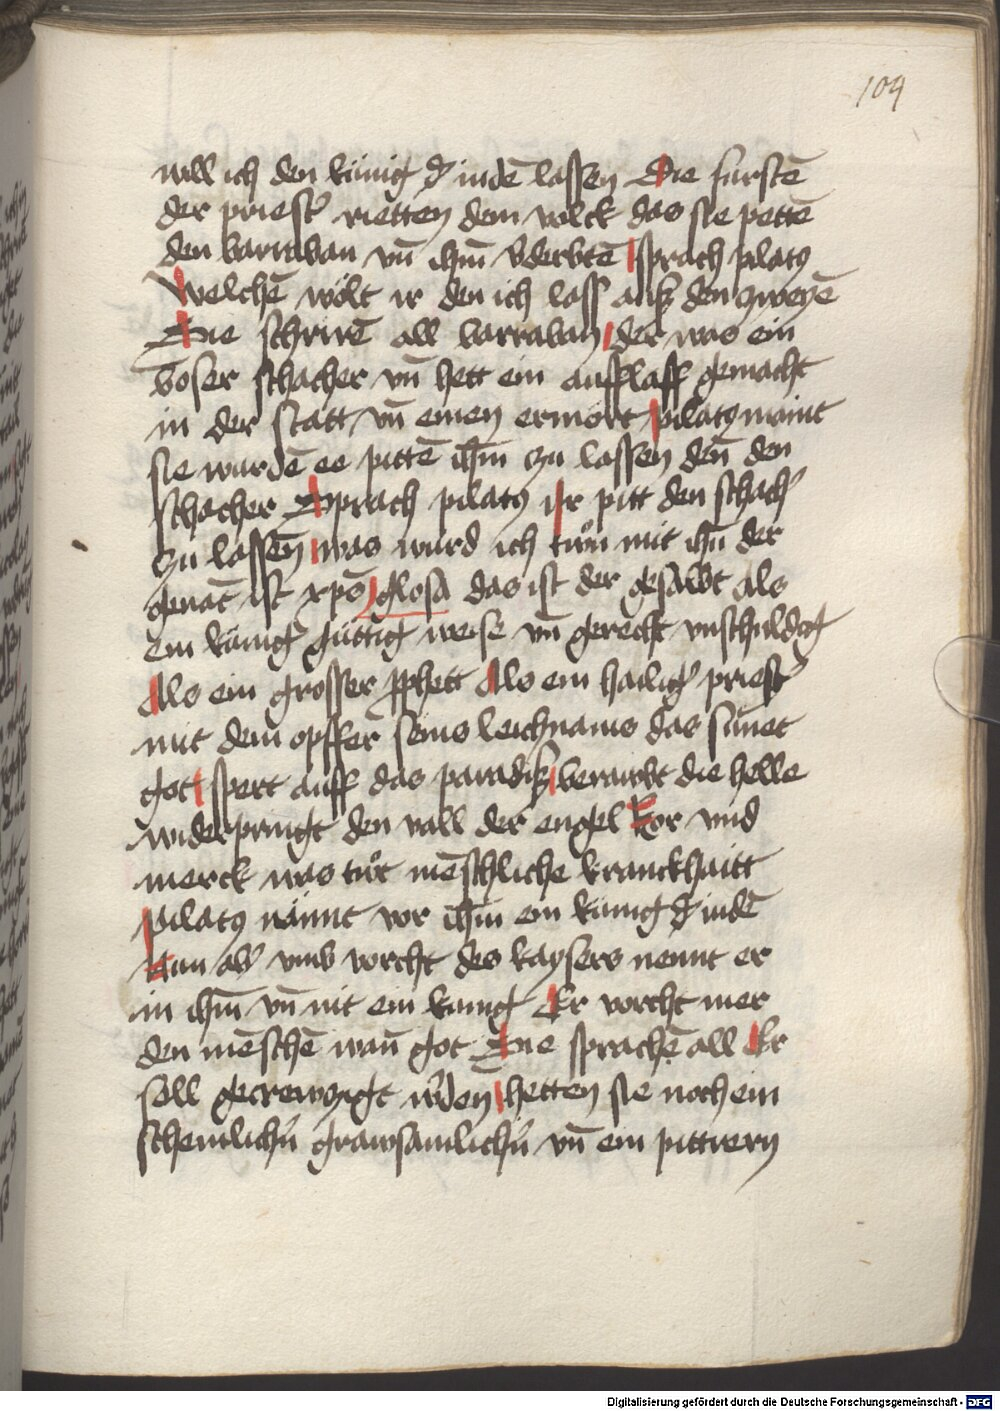 104
will ich den künig d' iudē lassen Die fürstē
der priest' rietten dem volck das sie pettē
den barraban vn̄ ihm̄ v̓derbtē sprach pilatꝰ
Welchē wölt ir den ich lass auß den zweyē
Die schrirē all barraban der was ein
böser schacher vn̄ hett ein aufflaff gemacht
in der statt vn̄ einen ermört pilatꝰ maint
sie wurdē ee pittē ihm̄ zu lassen den̄ den
schacher Sprach pilatꝰ ir pitt den schach'
zu lassen̄ was würd ich tůn mit ihū der
genāt ist xp̄o glosa das ist der gesalbt als
ein künig güttig weise vn̄ gerecht vnschuldig
Als ein grosser ꝓphett Als ein hailig' priest'
mit dem opffer seins leichnams das sünet
got spert auff das paradiß beraubt die helle
widerpringt den vall der engel kor vnd
merck was tůt mēschliche kranckhaitt
pilatꝰ nannt vor ihm̄ ein künig d' iudē
Nun ab' vmb vorcht des kaysers nennt er
in ihm̄ vn̄ nit ein künig Er vorcht mer
den mēschē wan̄ got Die sprachē all Er
soll gecrewzigt w'den hetten sie noch ein
schemlich'n grawsamlich'n vn̄ ein pittrern
Digitalisierung gefördert durch die Deutsche Forschungsgemeinschaft - DFG